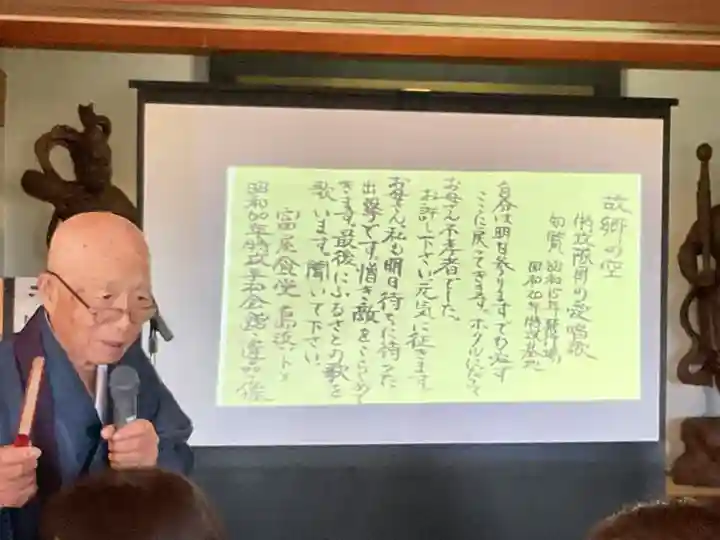 故郷の空
特攻隊員の愛唱歌
知覧 昭和15年飛行場
昭和20年特攻基地
自分は明日参ります でも必ず
ここに戻ってきます。ホタルになって
お母さん不孝者でした。
お許し下さい元気に征きます
お母さん、私も明日待ちに待った
出撃です。憎き敵を
きます。最後にふるさとの歌を
歌います。聞いて下さい。
富屋食堂 鳥浜トメ
昭和60年特攻平和会館